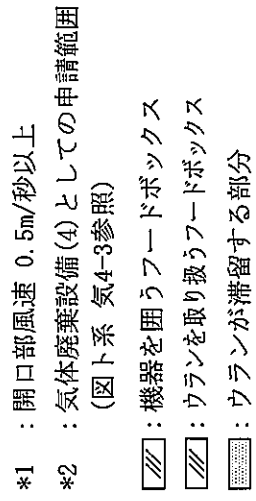 *1 ：開口部風速 0.5m/秒以上
*2 ：気体廃棄設備(4)としての申請範囲
(図ト系 気4-3参照)
：機器を囲うフードボックス
：ウランを取り扱うフードボックス
：ウランが滞留する部分